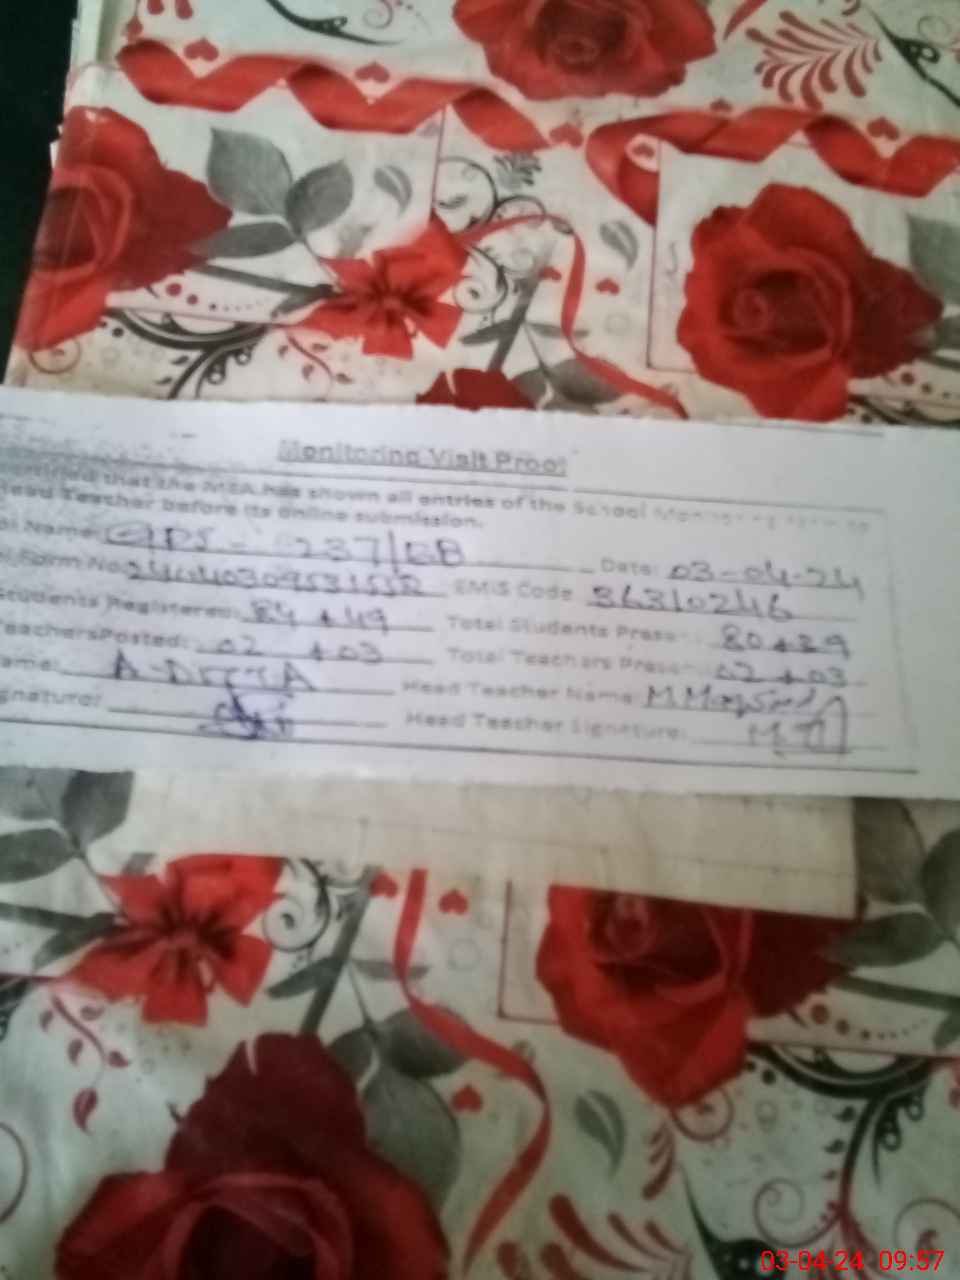 Monitoring Visit Proof
that the MEA has shown all entries of the School Monitoring form to
Head Teacher before its online submission.
Name: GPS - 237/EB Date: 03-04-24
Form No: EMIS Code 36310246
Students Registered: 84 + 49 Total Students Present: 80 + 39
Teachers Posted: 02 + 03 Total Teachers Present: 02 + 03
ame: A-DITTA Head Teacher Name: M. Maqsood
gnature: Head Teacher Signature:
03-04-24 09:57